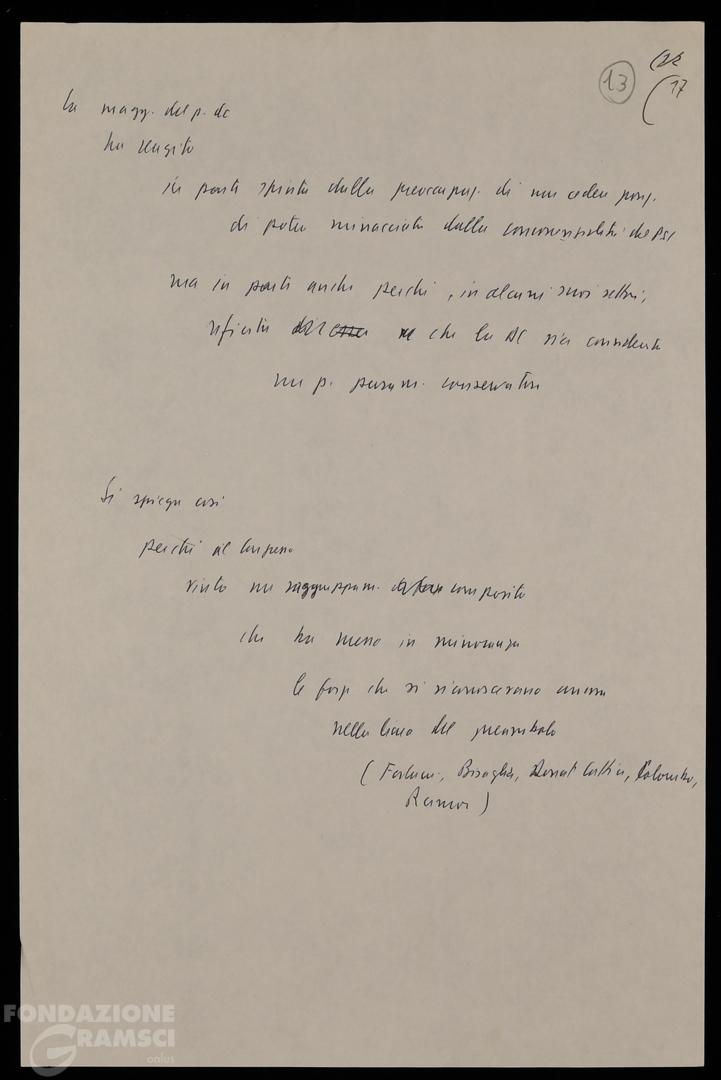 13
(22
(17
la magg. del p. dc
ha reagito
in parte spinta dalla preoccupaz. di non ceder posiz.
di potere minacciate dalla del PSI
ma in parte anche perché, in alcuni suoi settori,
rifiuta che la DC sia considerata
un p. puram. conservatore
Si spiega così
perché al Congresso
vinto un raggruppam. composito
che ha messo in minoranza
le forze che si riconoscevano ancora
nella linea del preambolo
(Forlani, Bisaglia, Donat Cattin, Colombo,
Rumor)
FONDAZIONE
GRAMSCI
onlus